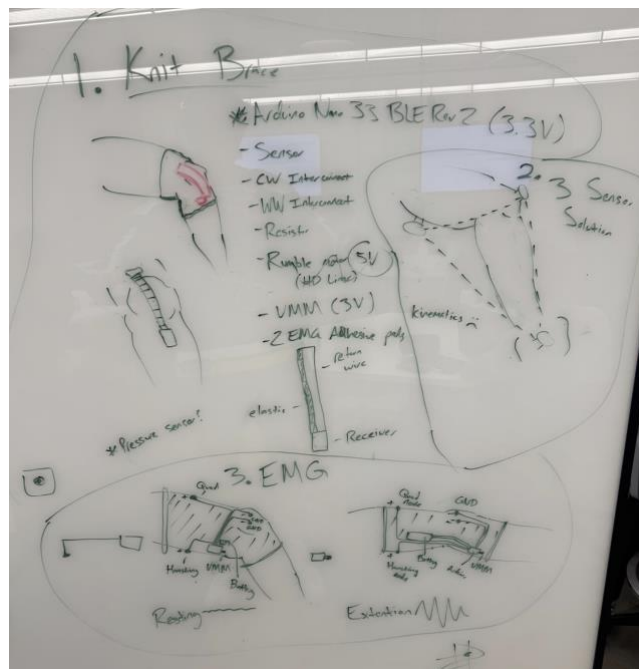 1. Knit Brace
* Arduino Nano 33 BLE Rev 2 (3.3V)
- Sensor
- CW Interconnect
- WW Interconnect
- Resistor
- Rumble motor 5V
- VMM (3V)
- 2 EMG Adhesive pads
return wire
elastic
Receiver
* Pressure sensor?
2.
3 Sensor
Solution
kinematics
3. EMG
Quad
GND
Mounting
VMM
Battery
Resting
Quad
GND
Mounting
Battery
VMM
Extention